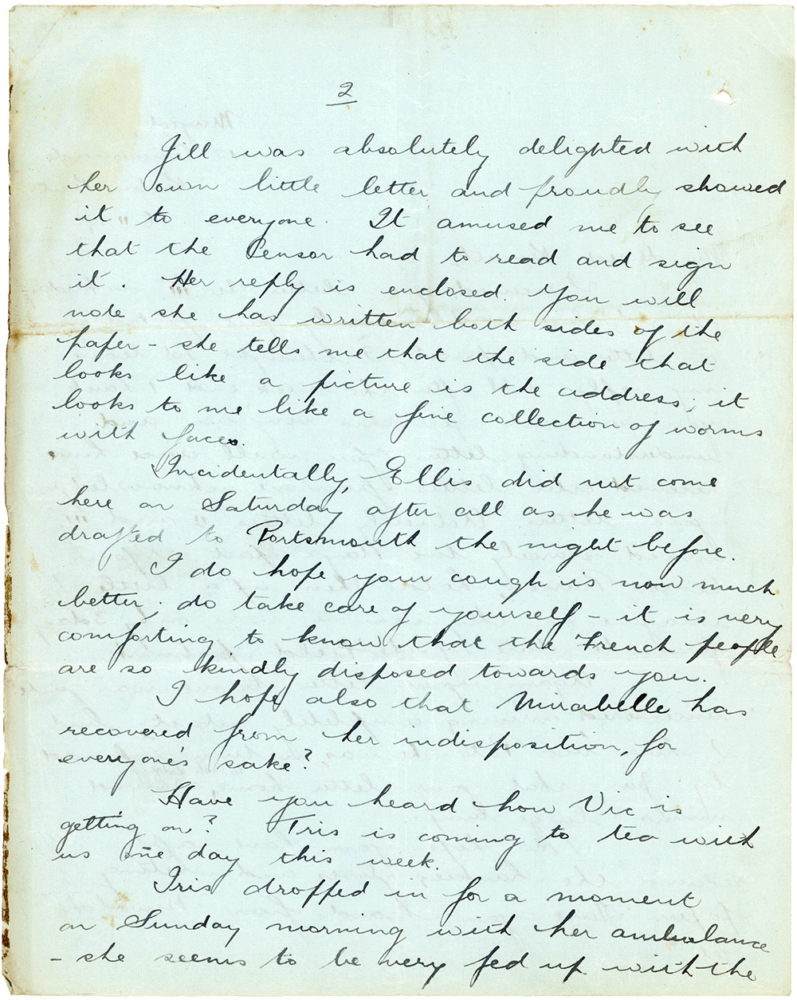 2
Jill was absolutely delighted with
her own little letter and proudly showed
it to everyone. It amused me to see
that the Censor had to read and sign
it. Her reply is enclosed. You will
note she has written both sides of the
paper - she tells me that the side that
looks like a picture is the address; it
looks to me like a fine collection of worms
with faces.
Incidentally, Ellis did not come
here on Saturday after all as he was
drafted to Portsmouth the night before.
I do hope your cough is now much
better; do take care of yourself - it is very
comforting to know that the French people
are so kindly disposed towards you.
I hope also that Mirabelle has
recovered from her indisposition, for
everyone's sake?
Have you heard how Vic is
getting on? Tris is coming to tea with
us one day this week.
Iris dropped in for a moment
on Sunday morning with her ambulance
- she seems to be very fed up with the